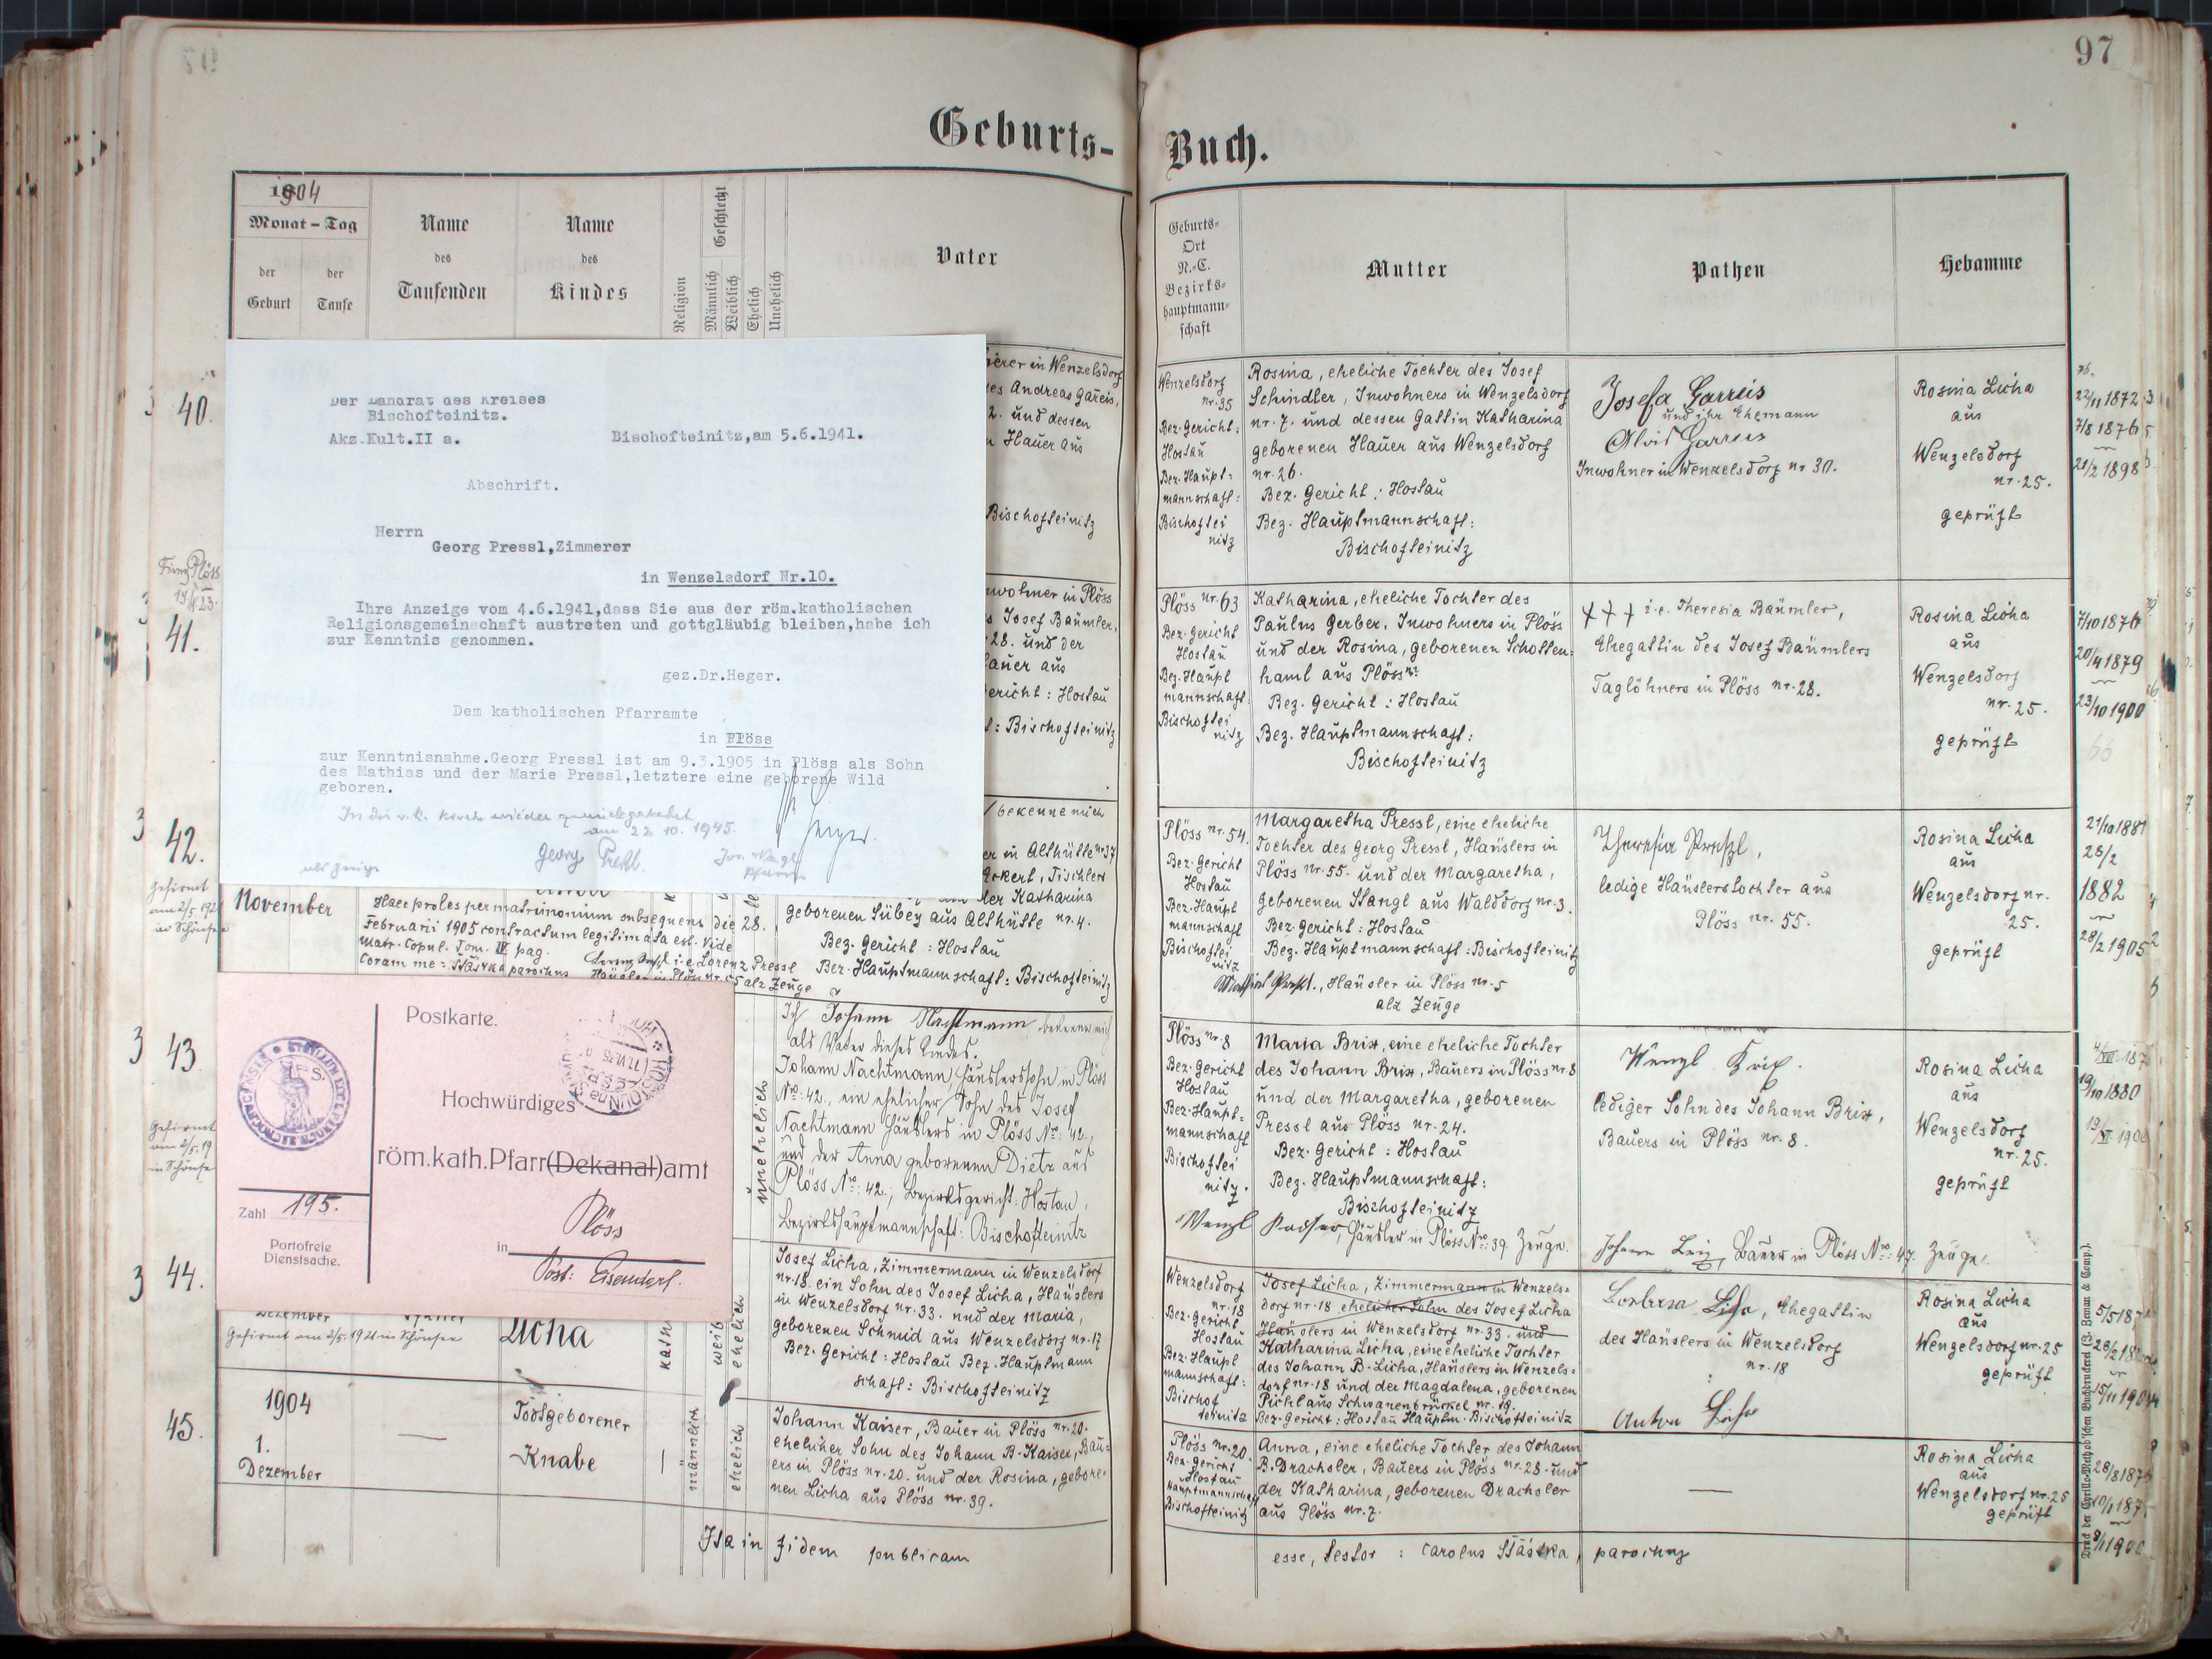 97
Geburts-
Buch.
1904
Monat - Tag
der Geburt
der Taufe
Name
des
Taufenden
Name
des
Kindes
Religion
Geschlecht
Männlich
Weiblich
Ehelich
Unehelich
Vater
Geburts-
Ort
N.-C.
Bezirks-
hauptmann-
schaft
Mutter
Pathen
Hebamme
Der Landrat des Kreises
Bischofteinitz.
Akz.Kult.II a.
Bischofteinitz,am 5.6.1941.
Abschrift.
Herrn
Georg Pressl,Zimmerer
in Wenzelsdorf Nr.10.
Ihre Anzeige vom 4.6.1941,dass Sie aus der röm.katholischen
Religionsgemeinschaft austreten und gottgläubig bleiben,habe ich
zur Kenntnis genommen.
gez.Dr.Heger.
Dem katholischen Pfarramte
in Plöss
zur Kenntnisnahme.Georg Pressl ist am 9.3.1905 in Plöss als Sohn
des Mathias und der Marie Pressl,letztere eine geborene Wild
geboren.
In die r. k. Kirche wieder zurückgekehrt
am 22. 10. 1945.
Georg Preßl.
als Zeuge
Pfarrer
40.
in Wenzelsdorf
des Andreas Gareis,
2. und dessen
Hauer aus
Bischofteinitz
Wenzelsdorf
nr. 35
Bez. Gericht:
Hostau
Bez. Haupt-
mannschaft:
Bischoftei
nitz
Rosina, eheliche Tochter des Josef
Schindler, Inwohners in Wenzelsdorf
nr. 7. und dessen Gattin Katharina
geborenen Hauer aus Wenzelsdorf
nr. 26.
Bez. Gericht: Hostau
Bez. Hauptmannschaft:
Bischofteinitz
Josefa Garreis
und ihr Ehemann
Alois Garreis
Inwohner in Wenzelsdorf nr 30.
Rosina Licha
aus
Wenzelsdorf
nr. 25.
geprüft
22/11 1872
7/8 1876
21/2 1898
41.
Plöss
Inwohner in Plöss
Josef Bäumler,
28. und der
Hauer aus
Gericht: Hostau
: Bischofteinitz
Plöss nr. 63
Bez. Gericht
Hostau
Bez. Haupt
mannschaft:
Bischoftei
nitz
Katharina, eheliche Tochter des
Paulus Gerber, Inwohners in Plöss
und der Rosina, geborenen Schotten-
haml aus Plöss nr.
Bez. Gericht: Hostau
Bez. Hauptmannschaft:
Bischofteinitz
+++ i. e. Theresia Bäumler,
Ehegattin des Josef Bäumlers
Taglöhners in Plöss nr. 28.
Rosina Licha
aus
Wenzelsdorf
nr. 25.
geprüft
7/10 1876
20/4 1879
23/10 1900
3
42.
Gefirmt
am 2/5. 192
in Schönsee
November
bekenne mich
in Althütte nr 37
Eckert, Tischlers
der Katharina
geborenen Sübey aus Althütte nr. 4.
Bez. Gericht: Hostau
Bez. Hauptmannschaft: Bischofteinitz
Haec proles per matrimonium subsequens die 28.
Februarii 1905 contractum legitimata est. Vide
Matr. Copul. Tom. IV pag.
Coram me: Štástka parochus
i. e. Lorenz Pressl
Häusler in Plöss nr. 55 als Zeuge
Plöss nr. 54.
Bez. Gericht
Hostau
Bez. Haupt
mannschaft
Bischoftei
nitz
Margaretha Pressl, eine eheliche
Tochter des Georg Pressl, Häuslers in
Plöss nr. 55. und der Margaretha,
geborenen Stangl aus Walddorf nr. 3.
Bez. Gericht: Hostau
Bez. Hauptmannschaft: Bischofteinitz
Mathias Preßl., Häusler in Plöss nr. 5
als Zeuge
Theresia Preßl,
ledige Häuslerstochter aus
Plöss nr. 55.
Rosina Licha
aus
Wenzelsdorf nr.
25.
geprüft
21/10 1881
28/2
1882
28/2 1905
3
43
Gefirmt
am 2/5. 19
in Schönse
unehelich
Ich Johann Nachtmann bekenne mich
als Vater dieses Kindes.
Johann Nachtmann Häuslerssohn in Plöss
No: 42., ein ehelicher Sohn des Josef
Nachtmann Häuslers in Plöss No: 42.,
und der Anna geborenen Dietz aus
Plöss No: 42., Bezirksgericht: Hostau,
Bezirkshauptmannschaft: Bischofteinitz
Plöss nr. 8
Bez. Gericht
Hostau
Bez. Haupt-
mannschaft
Bischoftei
nitz.
Maria Brix, eine eheliche Tochter
des Johann Brix, Bauers in Plöss nr. 8
und der Margaretha, geborenen
Pressl aus Plöss nr. 24.
Bez. Gericht: Hostau
Bez. Hauptmannschaft:
Bischofteinitz
Häusler in Plöss No: 39. Zeuge.
Wenzl Brix.
lediger Sohn des Johann Brix,
Bauers in Plöss nr. 8.
Bauer in Plöss No: 47. Zeuge.
Rosina Licha
aus
Wenzelsdorf
nr. 25.
geprüft
19/10 1880
Postkarte.
Hochwürdiges
röm.kath.Pfarr(Dekanal)amt
in Plöss
Post: Eisendorf.
Zahl 195.
Portofreie
Dienstsache.
3
44.
Dezember
Gefirmt am 2/5. 1921 in Schönsee
Licha
kath
weib
ehelich
Josef Licha, Zimmermann in Wenzelsdorf
nr. 18. ein Sohn des Josef Licha, Häuslers
in Wenzelsdorf nr. 33. und der Maria,
geborenen Schmid aus Wenzelsdorf nr. 17
Bez. Gericht: Hostau Bez. Hauptmann
schaft: Bischofteinitz
Wenzelsdorf
nr. 18
Bez. Gericht
Hostau
Bez. Haupt
mannschaft:
Bischof
teinitz
Josef Licha, Zimmermann in Wenzels-
dorf nr. 18 ehelicher Sohn des Josef Licha
Häuslers in Wenzelsdorf nr. 33. und
Katharina Licha, eine eheliche Tochter
des Johann B. Licha, Häuslers in Wenzels-
dorf nr. 18 und der Magdalena, geborenen
Pichl aus Schwanenbrückel nr. 19.
Bez. Gericht: Hostau Hauptm. Bischofteinitz
Barbara Licha, Ehegattin
des Häuslers in Wenzelsdorf
nr. 18
Anton Licha
Rosina Licha
aus
Wenzelsdorf nr. 25
geprüft
45.
1904
1.
Dezember
—
Todtgeborener
Knabe
—
männlich
ehelich
Johann Kaiser, Bauer in Plöss nr. 20.
ehelicher Sohn des Johann B. Kaiser, Bau-
ers in Plöss nr. 20. und der Rosina, gebore-
nen Licha aus Plöss nr. 39.
Plöss nr. 20.
Bez. Gericht
Hostau
Hauptmannschaft
Bischofteinitz
Anna, eine eheliche Tochter des Johann
B. Drachsler, Bauers in Plöss nr. 28. und
der Katharina, geborenen Drachsler
aus Plöss nr. 7.
—
Rosina Licha
aus
Wenzelsdorf nr. 25
geprüft
Ita in fidem publicam
esse, testor: Carolus Štástka, parochus
Druck der Cyrillo-Method'schen Buchdruckerei (J. Zeman & Comp.).